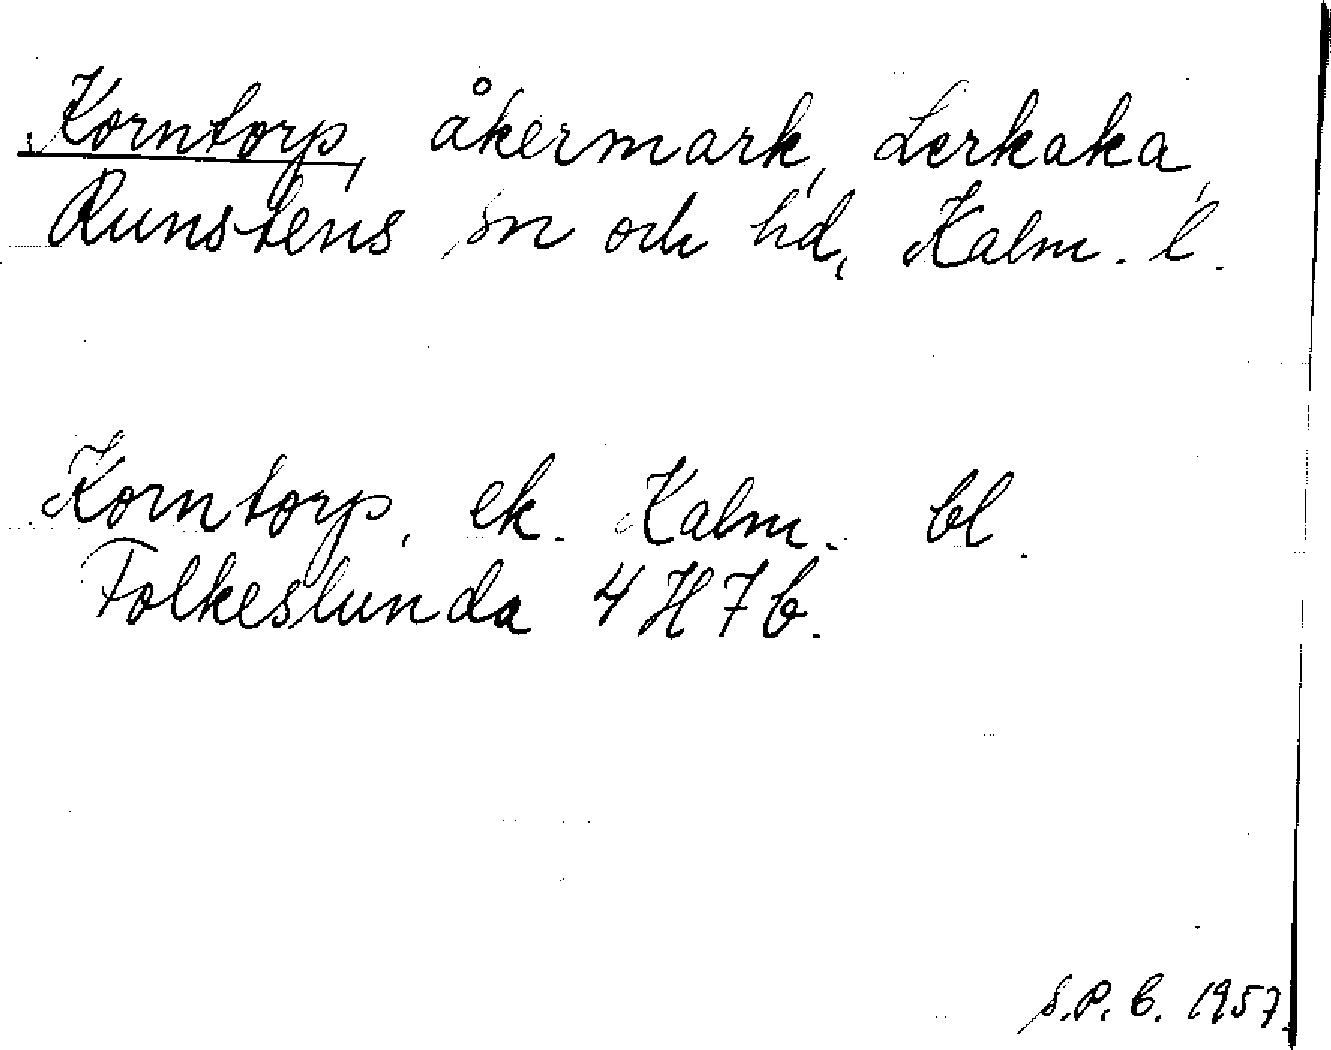 Korntorp, åkermark, Lerkaka,
Runstens sn och hd, Kalm. l.
Korntorp, ek. Kalm. bl.
Folkeslunda 4 H 7 b.
S.P.B. 1957.